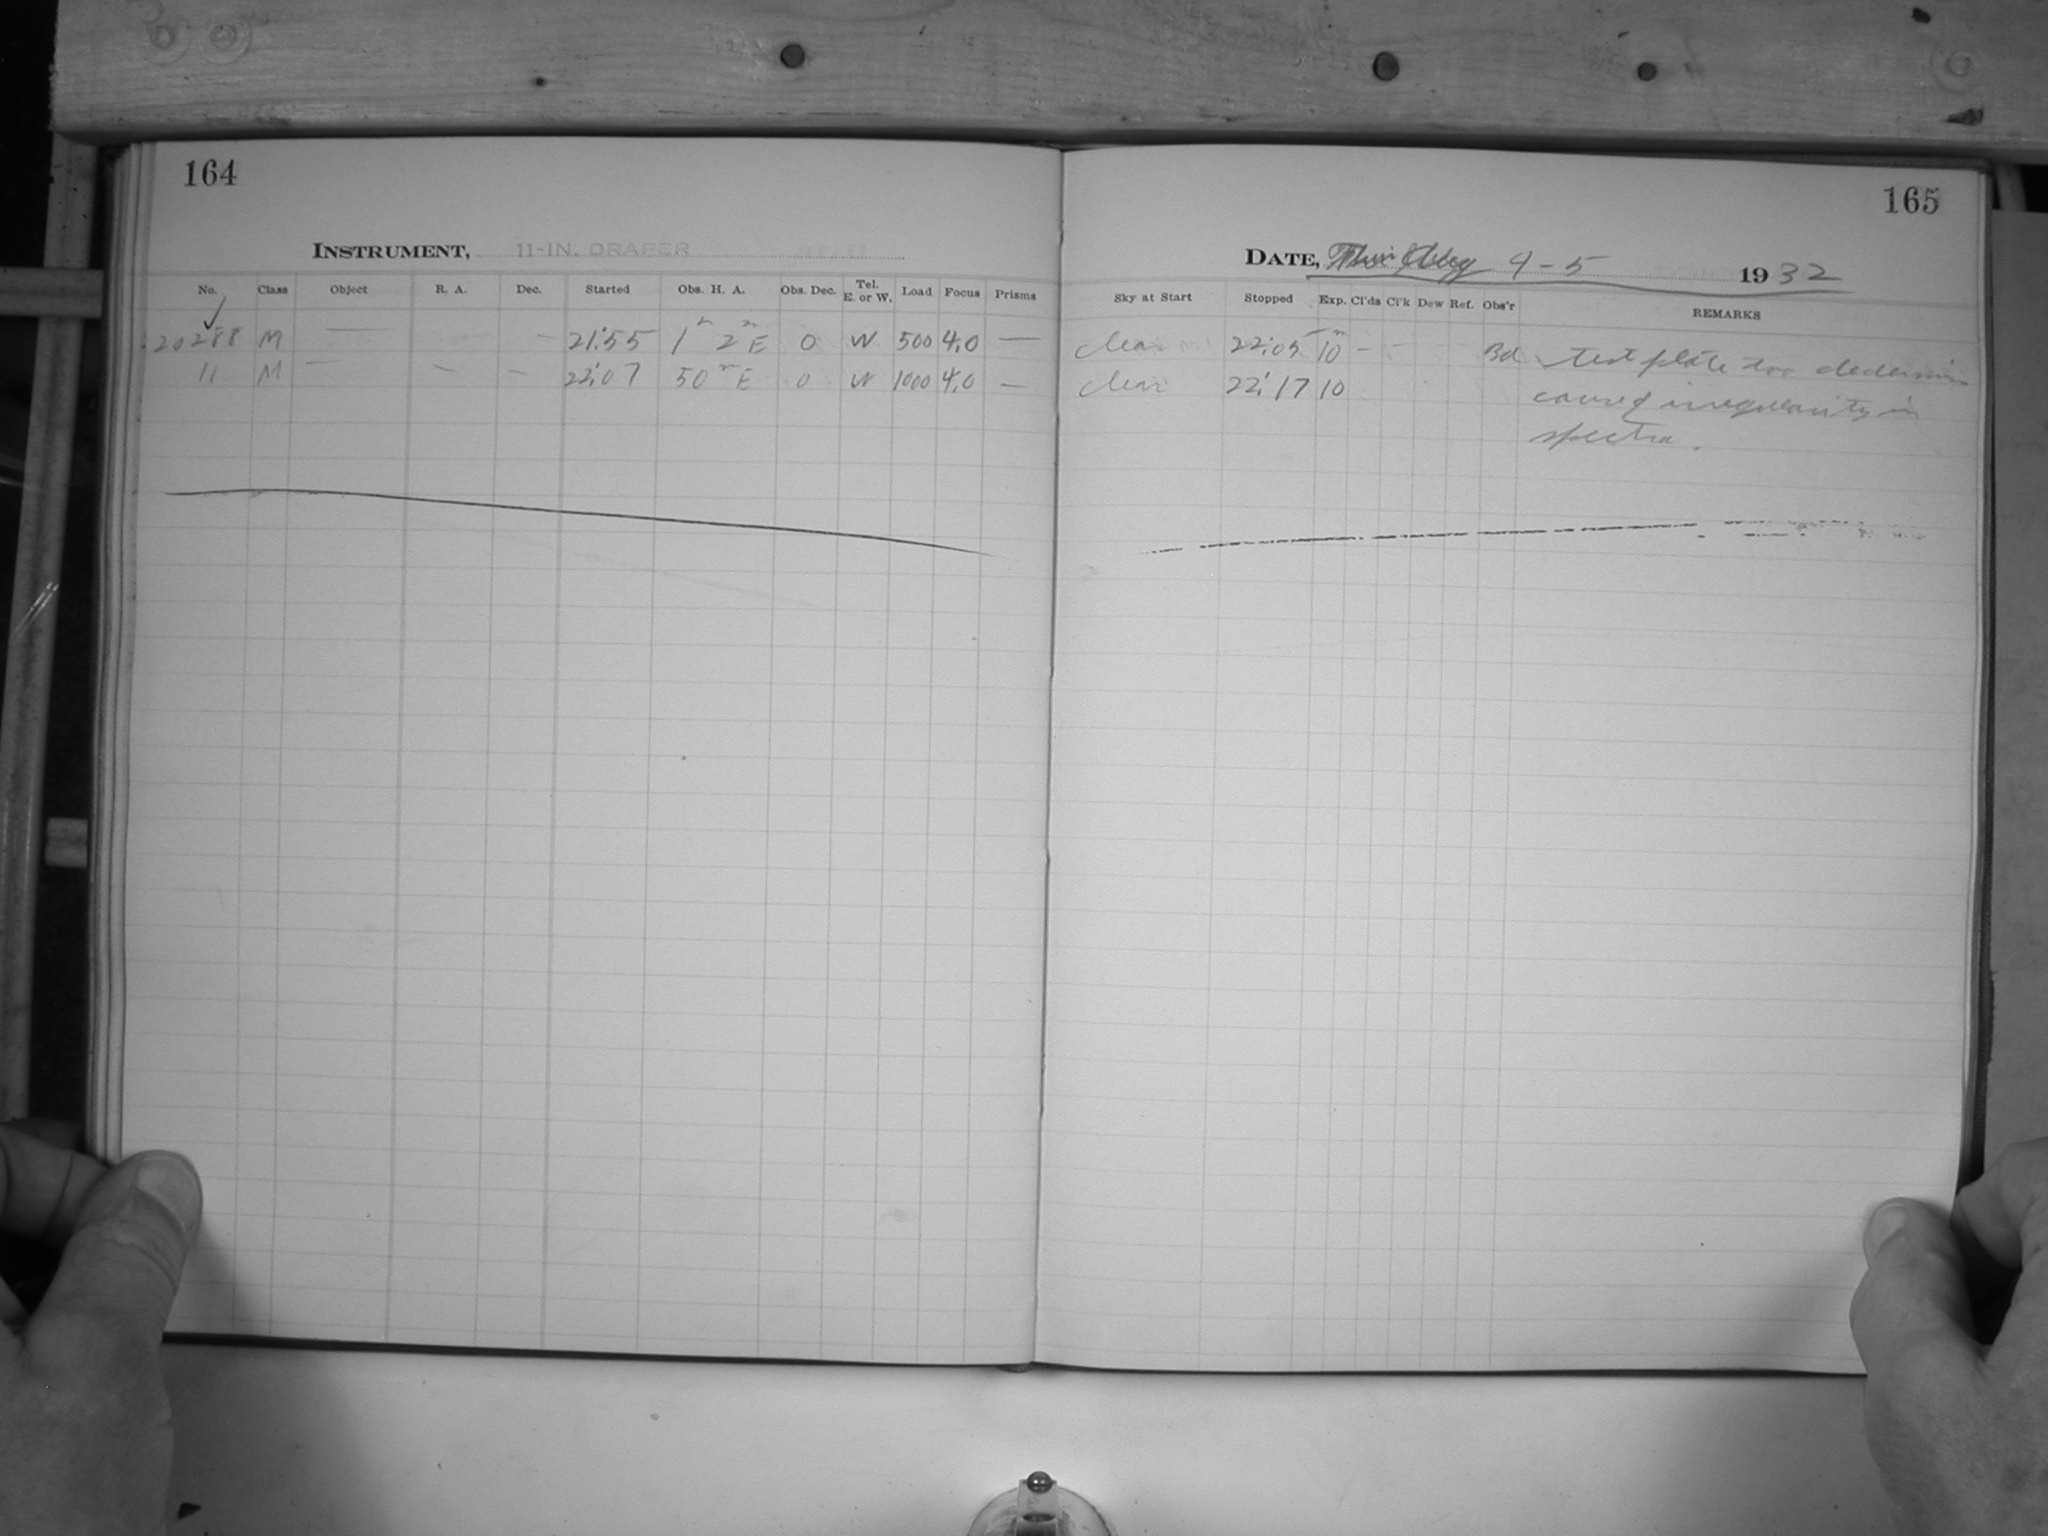 164
165
INSTRUMENT, 11-IN. DRAPER
DATE, 4-5 1932
No. Class Object R. A. Dec. Started Obs. H. A. Obs. Dec. Tel. E. or W. Load Focus Prisms Sky at Start Stopped Exp. Cl'ds Cl'k Dew Ref. Obs'r REMARKS
20288 M — — 21:55 1h 2m E 0 W 500 4.0 — clear 22:05 10m - - Bd test plate too
11 M — — — 22:07 50m E 0 W 1000 4.0 — clear 22:17 10 cause of irregularity in
spectra.